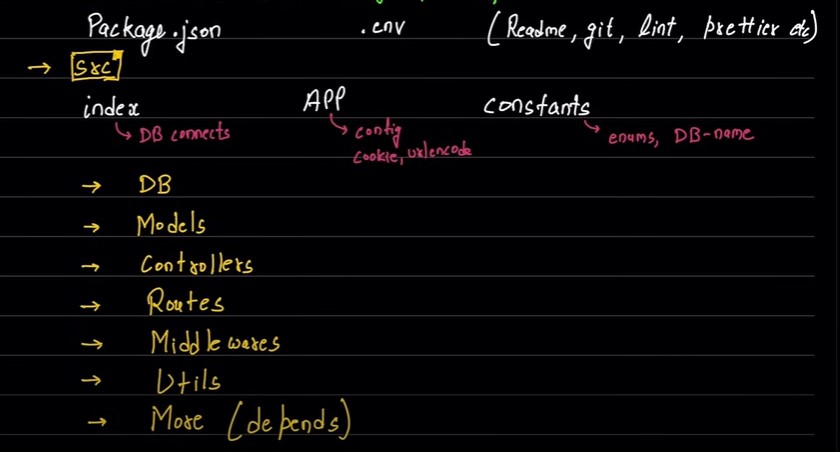 Package.json .env (Readme, git, lint, prettier etc)
→ src
index APP constants
↳ DB connects ↳ config ↳ enums, DB-name
cookie, urlencode
→ DB
→ Models
→ Controllers
→ Routes
→ Middlewares
→ Utils
→ More (depends)